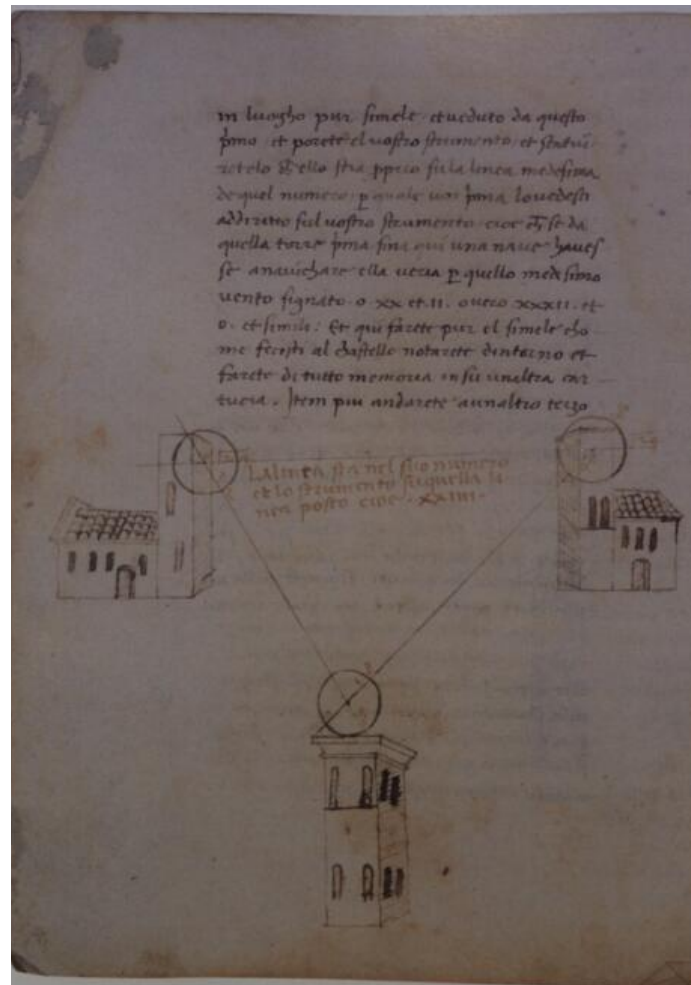 in luogho pur simele et veduto da questo
p̄mo et porete el vostro strumento et statui
retelo ch̄ ello stia ppico su la linea medesima
de quel numero p quale voi p̄ma lo vedesti
addiritto sul vostro strumento cioe ch̄ se da
quella torre p̄ma sina qui una nave haves
se a navichare ella veria p quello medesimo
vento signato . o xx et .II. overo xxxII. et
o. et simili: Et qui farete pur el simele cho
me facesti al chastello notarete dintorno et
farete di tutto memoria in su unaltra car
tucia. Item piu andarete a unaltro terzo
La linea sta nel suo numero
et lo strumento su quella li
nea posto cioe . xxIIII.